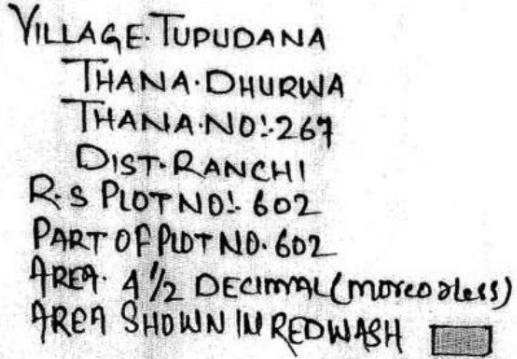 VILLAGE. TUPUDANA
THANA. DHURWA
THANA. NO:. 267
DIST. RANCHI
R.S PLOT NO:. 602
PART OF PLOT NO. 602
AREA. 4 1/2 DECIMAL (more or less)
AREA SHOWN IN RED WASH